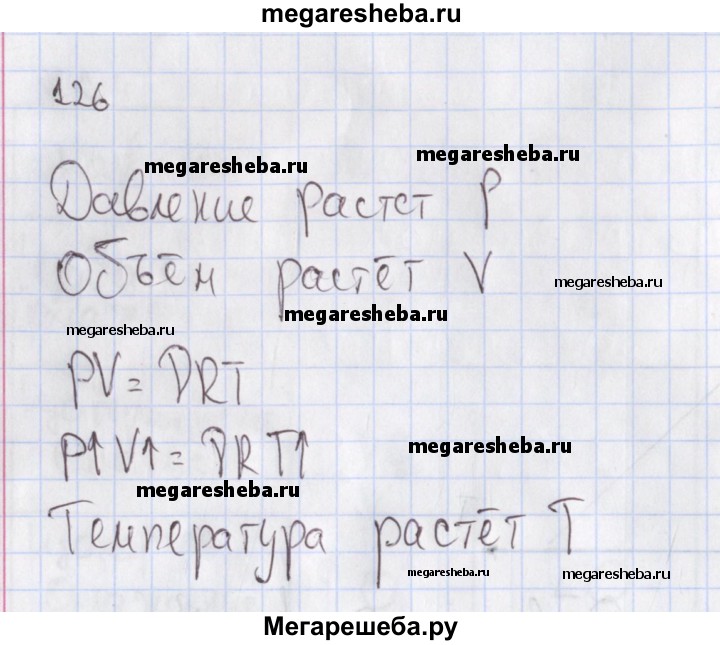 megaresheba.ru
126
megaresheba.ru
megaresheba.ru
Давление растет P
Объём растёт V
megaresheba.ru
megaresheba.ru
megaresheba.ru
PV = νRT
megaresheba.ru
P↑ V↑ = νRT↑
megaresheba.ru
Температура растёт T
megaresheba.ru
megaresheba.ru
Мегарешеба.ру